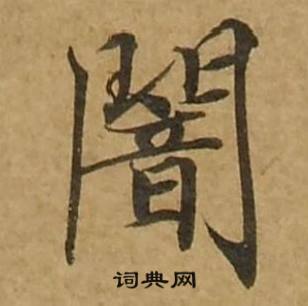 闇
词典网